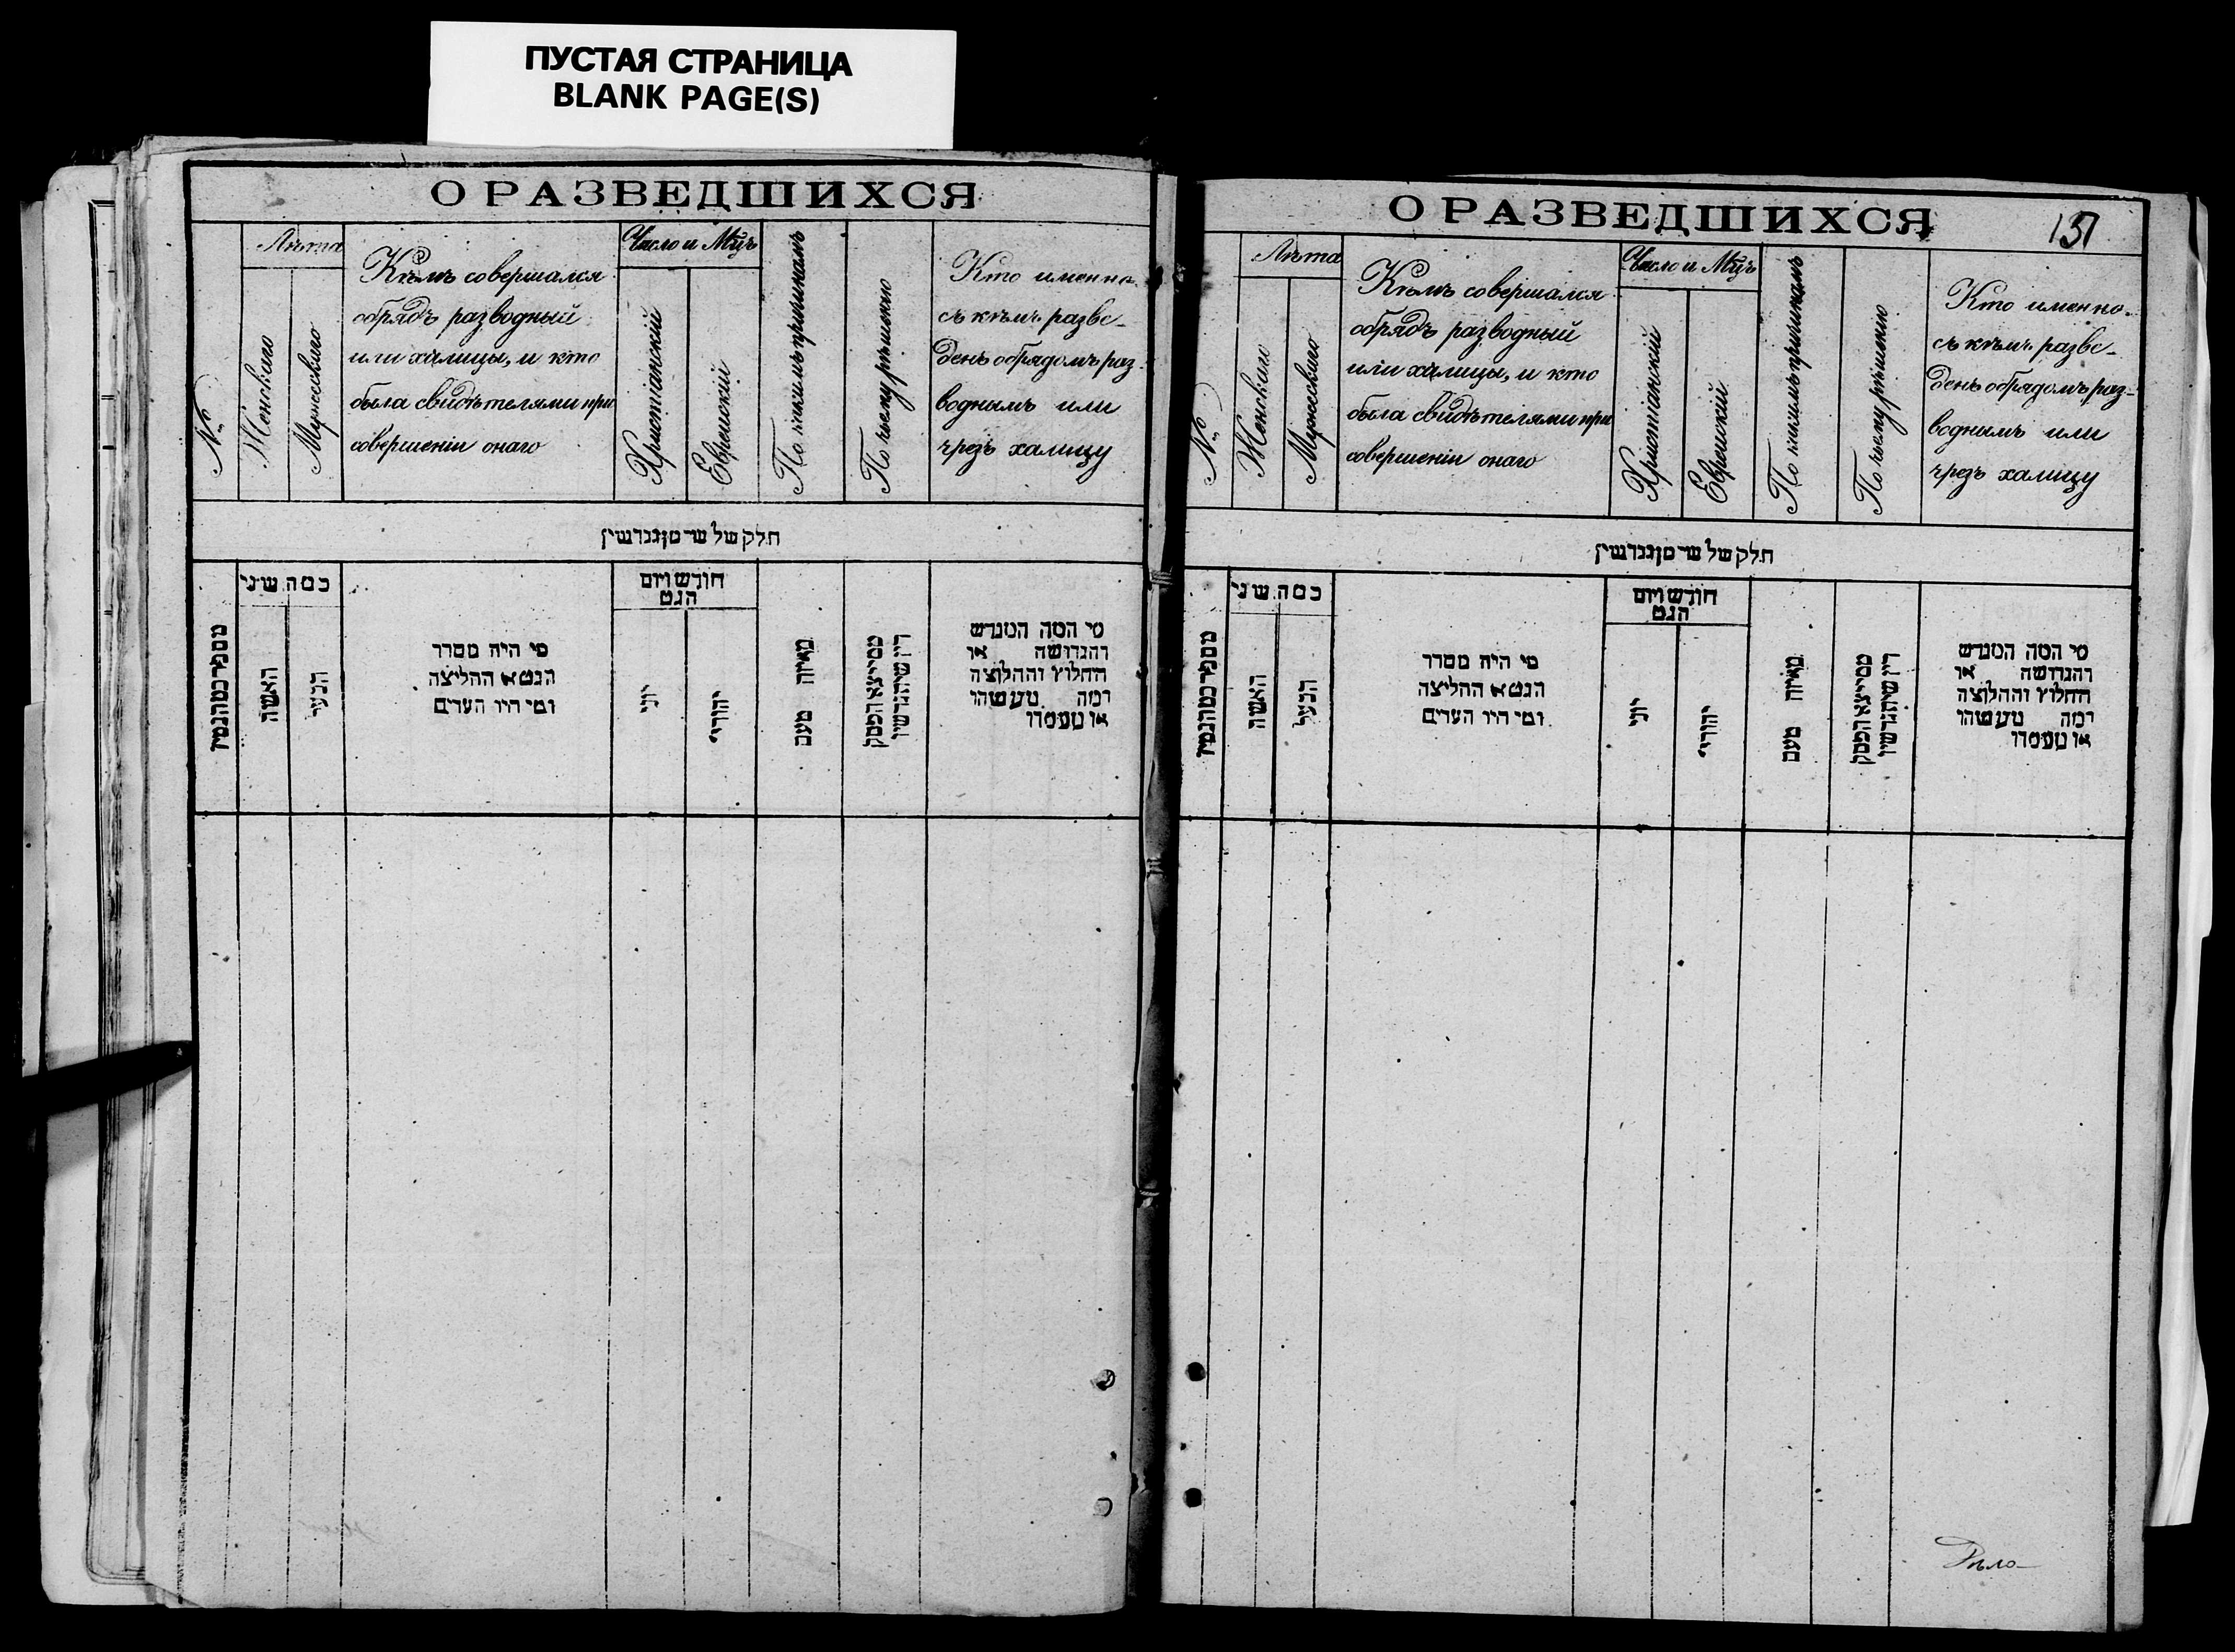 ПУСТАЯ СТРАНИЦА
BLANK PAGE(S)
О РАЗВЕДШИХСЯ
№
Лѣта
Женскаго
Мужескаго
Кѣмъ совершался
обрядъ разводный
или халицы, и кто
была свидѣтелями при
совершеніи онаго
Число и Мцъ
Христіанскій
Еврейскій
По какимъ причинамъ
По чьему рѣшенію
Кто именно
съ кѣмъ разве-
денъ обрядомъ раз-
воднымъ или
чрезъ халицу
חלק של שר
מספר
כמה שני
האשה
הבעל
מי היה מסדר
הגט או החליצה
ומי היו העדים
חודש ויום
הגט
יוני
יהודי
מאיזה טעם
מי המה המגרש
והגרושה או
החלוץ והחלוצה
ומה מעשהו
או מעמדו
О РАЗВЕДШИХСЯ
137
№
Лѣта
Женскаго
Мужескаго
Кѣмъ совершался
обрядъ разводный
или халицы, и кто
была свидѣтелями при
совершеніи онаго
Число и Мцъ
Христіанскій
Еврейскій
По какимъ причинамъ
По чьему рѣшенію
Кто именно
съ кѣмъ разве-
денъ обрядомъ раз-
воднымъ или
чрезъ халицу
חלק של שר
מספר
כמה שני
האשה
הבעל
מי היה מסדר
הגט או החליצה
ומי היו העדים
חודש ויום
הגט
יוני
יהודי
מאיזה טעם
מי המה המגרש
והגרושה או
החלוץ והחלוצה
ומה מעשהו
או מעמדו